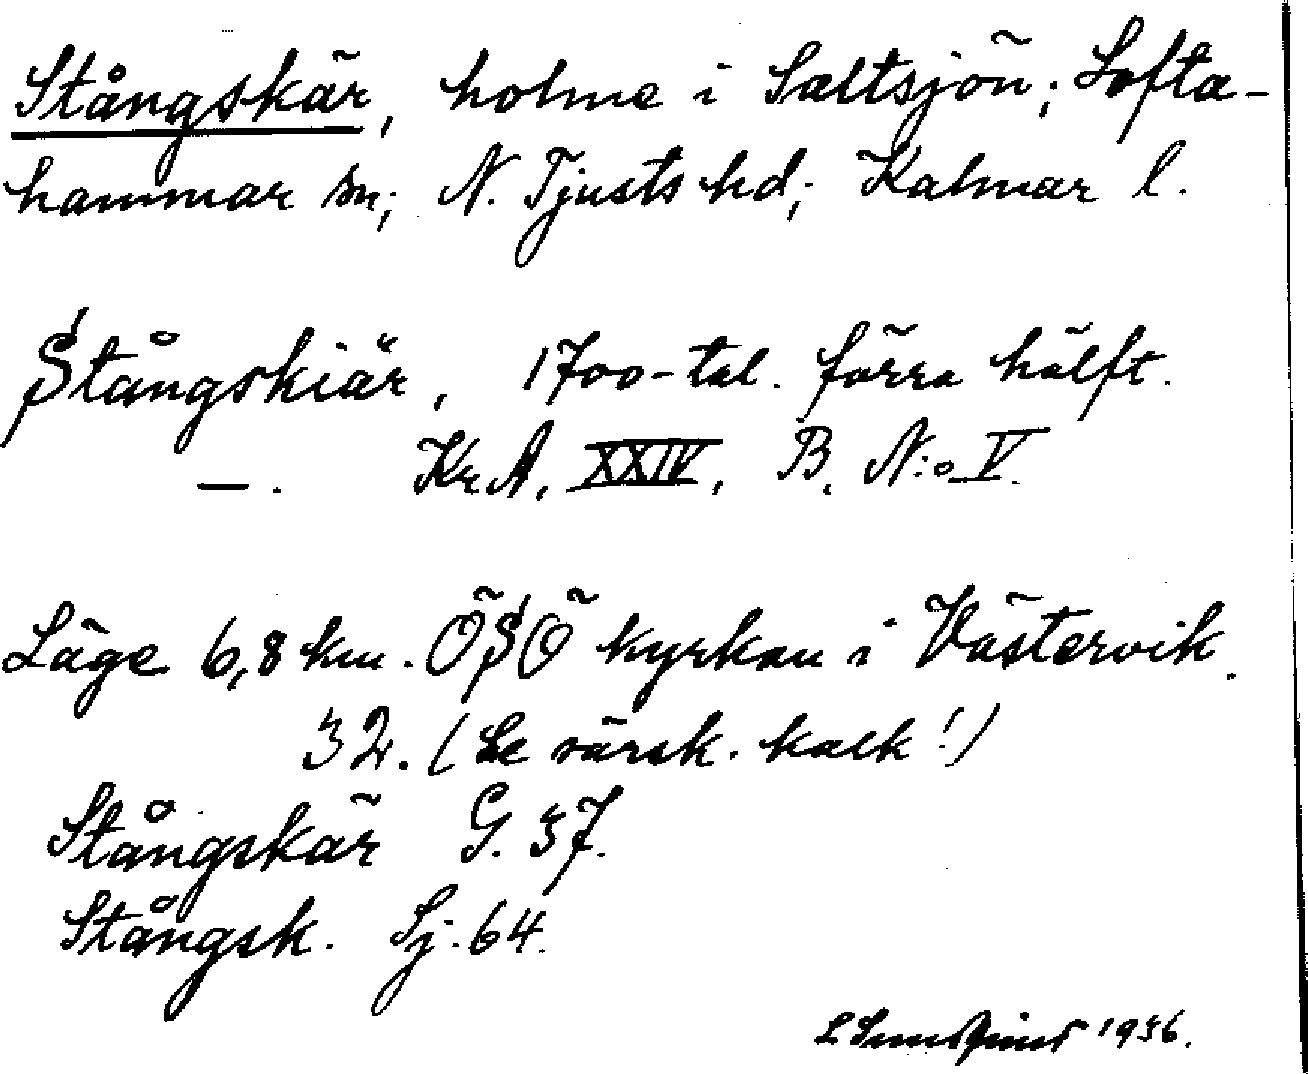 Stångskär, holme i Saltsjön; Lofta-
hammar sn; N. Tjusts hd; Kalmar l.
Stångskiär, 1700-tal. förra hälft.
—. Kr A, XXIV, B. N:o V.
Läge 6,8 km. ÖSÖ kyrkan i Västervik.
32. (Se särsk. kalk!)
Stångskär G. 37.
Stångsk. Sj. 64.
1936.